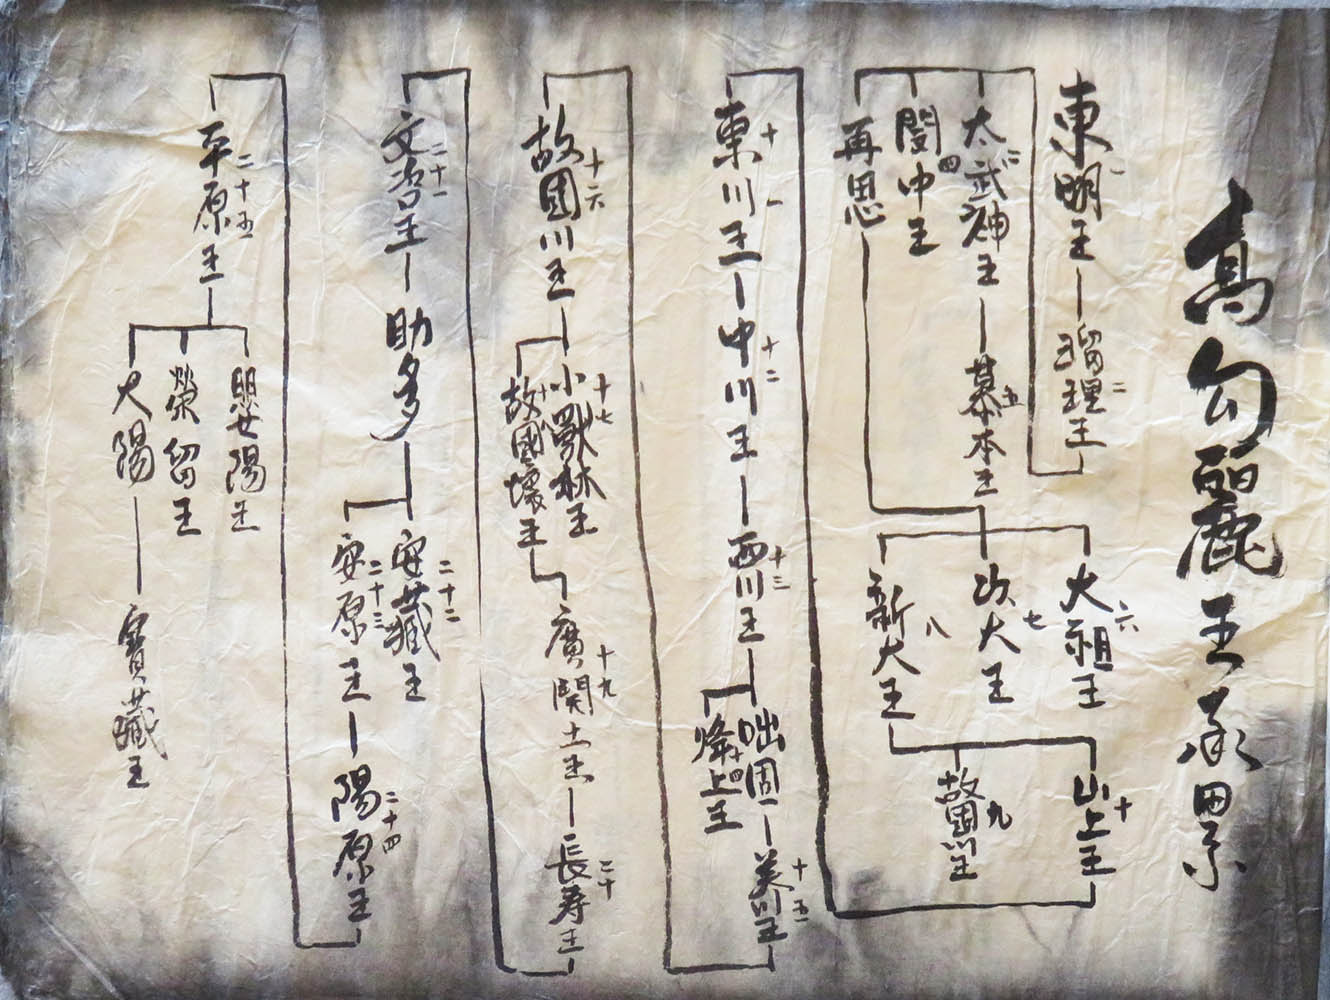 高勾麗王承累
東明王 一
瑠理王 二
太武神王 三
慕本王 五
閔中王 四
再思
大祖王 六
次大王 七
新大王 八
山上王 十
故國川王 九
東川王 十一
中川王 十二
西川王 十三
咄固
烽上王 十四
美川王 十五
故國川王 十六
小獸林王 十七
故國壤王 十八
廣開土王 十九
長寿王 二十
文咨王 二十一
助多
安藏王 二十二
安原王 二十三
陽原王 二十四
平原王 二十五
嬰陽王
榮留王
大陽
寶藏王